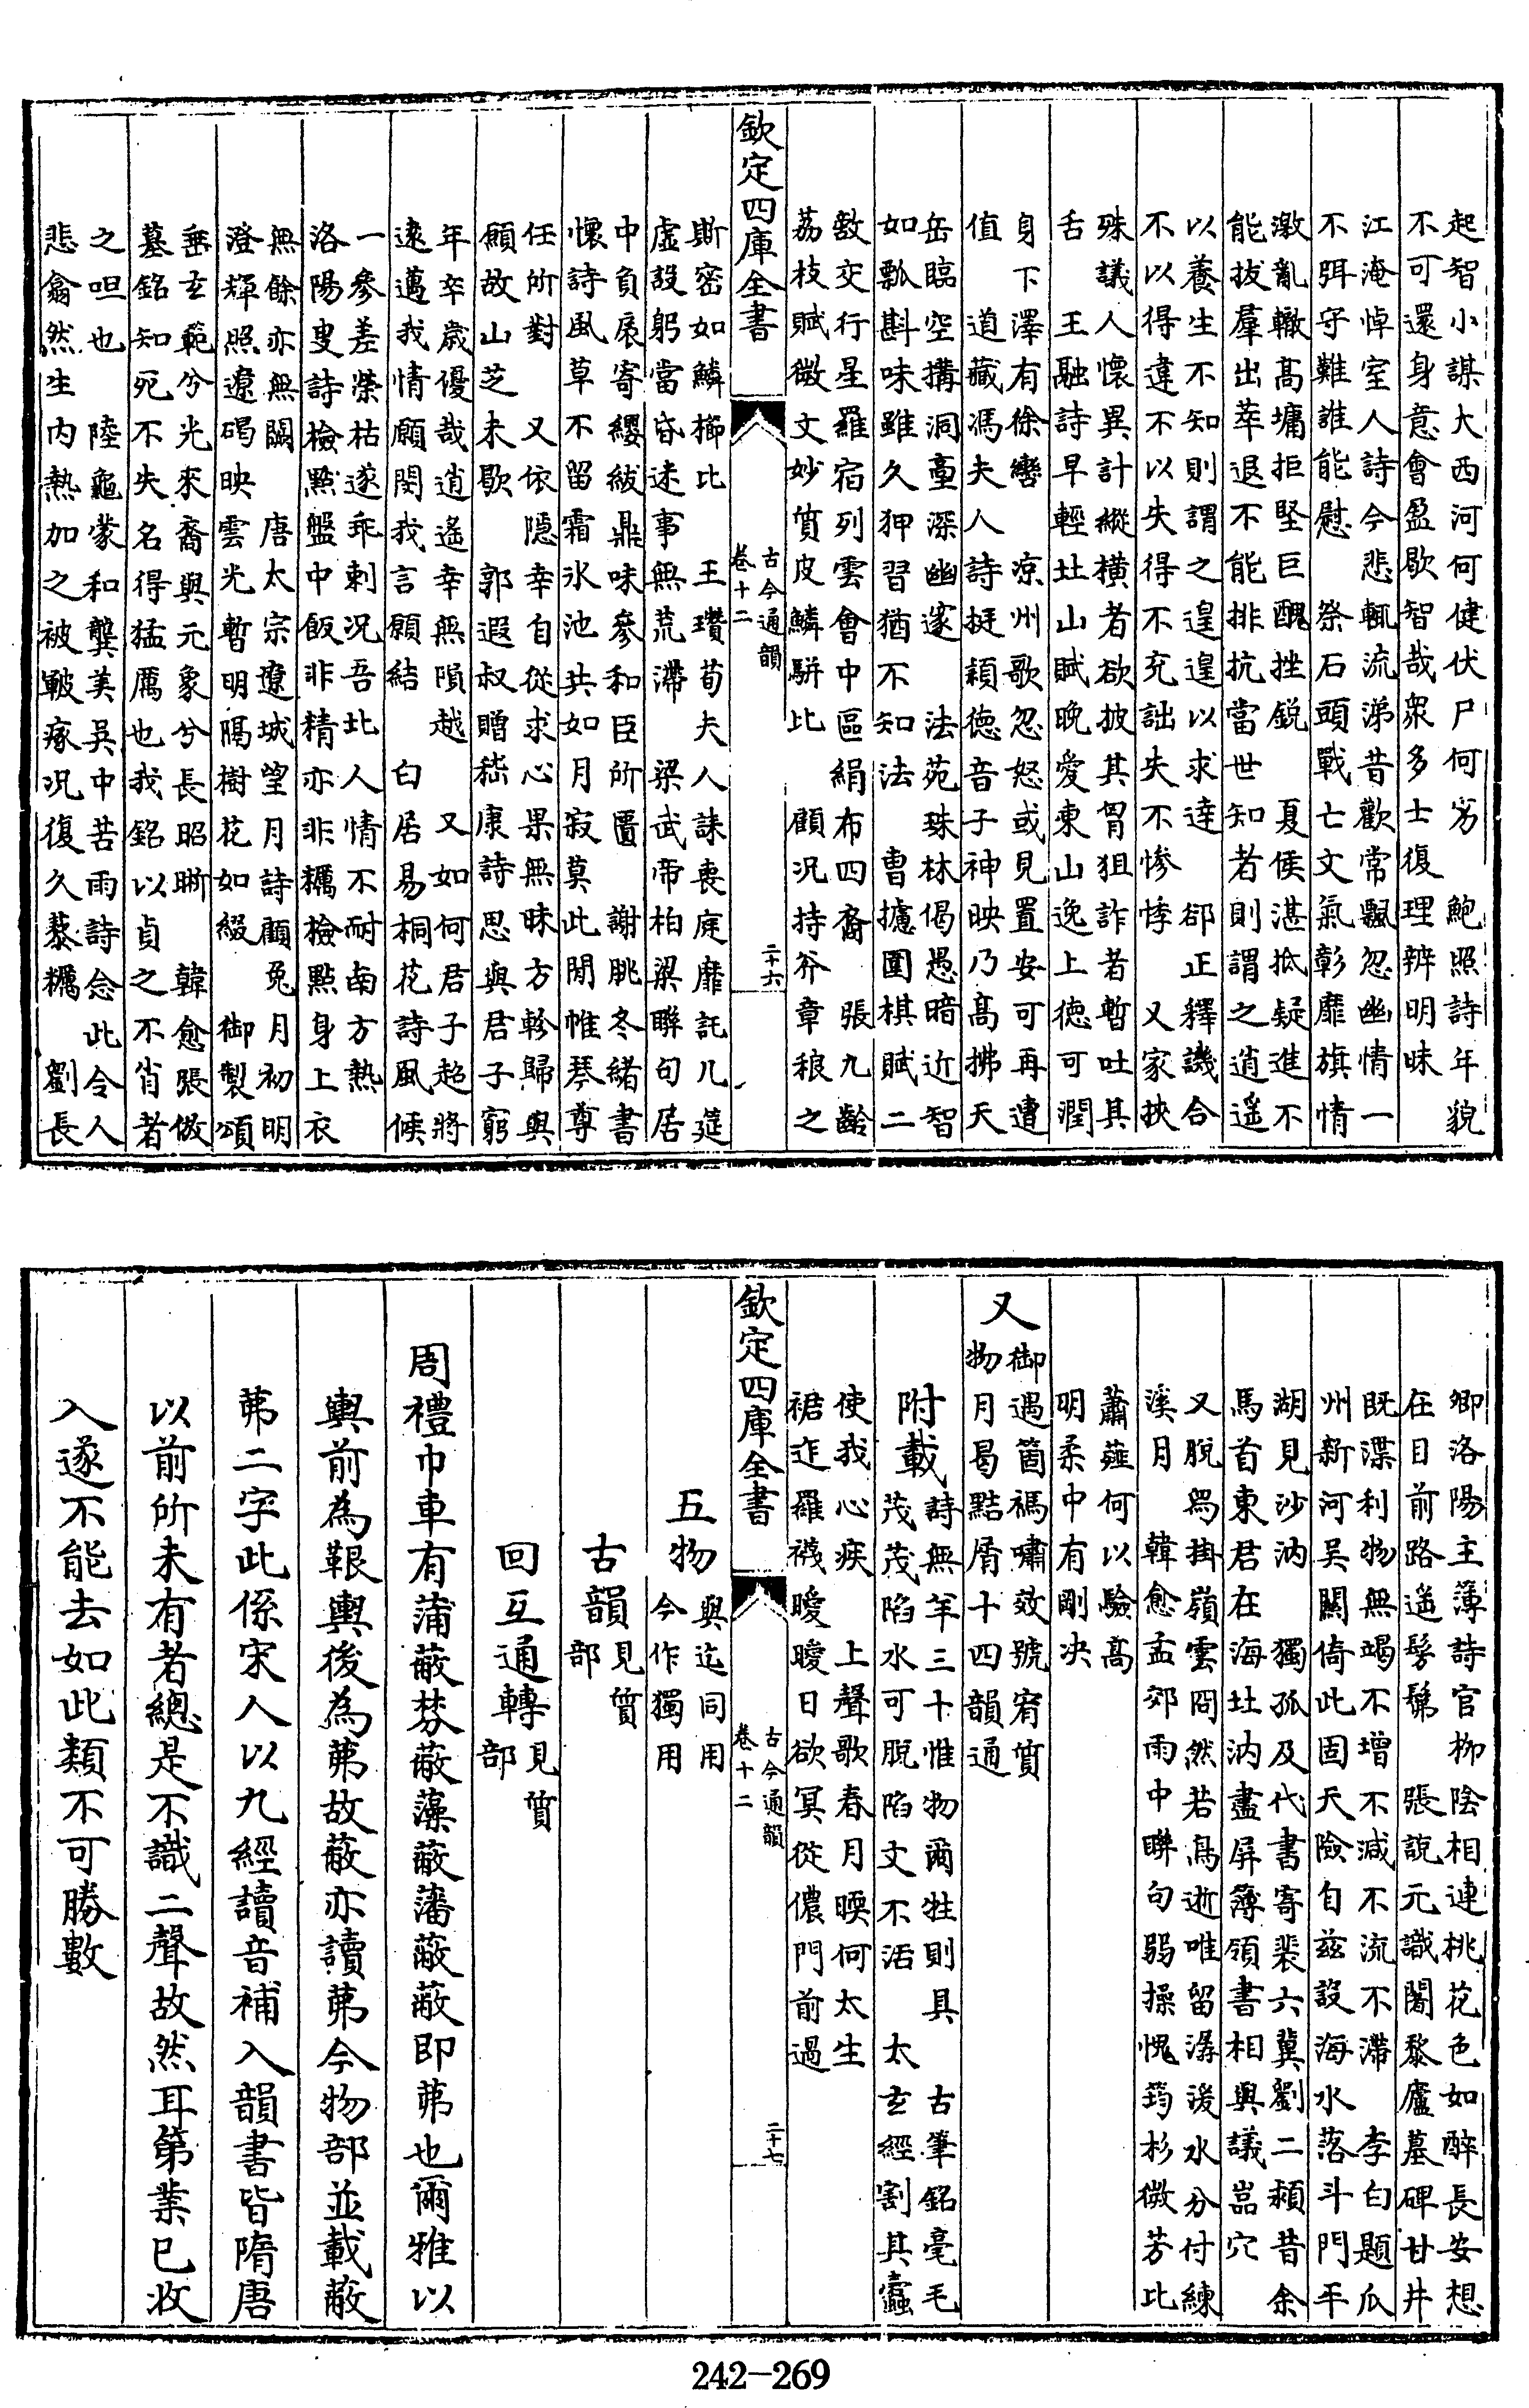 起智小謀大西河何健伏尸何劣　鮑照詩年貌
不可還身意會盈歇智哉衆多士復理辨明昧
江淹悼室人詩今悲輒流涕昔歡常飄忽幽情一
不弭守難誰能慰　祭石頭戰亡文氣彰靡旗情
激亂轍高墉拒堅巨醜挫銳　夏侯湛抵疑進不
能拔羣出萃退不能排抗當世知者則謂之逍遥
以養生不知則謂之遑遑以求達　郤正釋譏合
不以得違不以失得不充詘失不慘悸　又家挾
殊議人懷異計縱橫者欲披其胷狙詐者暫吐其
舌　王融詩早輕北山賦晚愛東山逸上德可潤
身下澤有徐轡　凉州歌忽怒或見置安可再遭
值　道藏馮夫人詩挺穎德音子神映乃高拂天
岳臨空搆洞臺深幽邃　法苑珠林偈愚暗近智
如瓢斟味雖久狎習猶不知法　曹攄圍棋賦二
敵交行星羅宿列雲會中區絹布四裔　張九齡
荔枝賦微文妙質皮鱗駢比　顧況持斧章稂之
欽定四庫全書
古今通韻
卷十二
二十六
斯密如鱗櫛比　王瓚荀夫人誄喪庭靡託几筵
虛設躬當昏迷事無荒滯　梁武帝柏梁聯句居
中負扆寄纓紱鼎味參和臣所匱　謝朓冬緒書
懷詩風草不留霜氷池共如月寂莫此閒帷琴尊
任所對　又依隱幸自從求心果無昧方軫歸與
願故山芝未歇　郭遐叔贈嵇康詩思與君子窮
年卒歲優哉逍遥幸無隕越　又如何君子超將
遠邁我情願關我言願結　白居易桐花詩風候
一參差榮枯遂乖剌况吾北人情不耐南方熱
洛陽叟詩檢點盤中飯非精亦非糲檢點身上衣
無餘亦無闕　唐太宗遼城望月詩顧兔月初明
澄輝照遼碣映雲光暫明隔樹花如綴　御製頌
垂玄範兮光來裔與元象兮長昭晣　韓愈張徹
墓銘知死不失名得猛厲也我銘以貞之不肖者
之呾也　陸龜蒙和龔美吳中苦雨詩念此令人
悲翕然生内熱加之被皸瘃况復久藜糲　劉長
卿洛陽主簿詩官柳陰相連桃花色如醉長安想
在目前路遥髣髴　張說元識闍黎廬墓碑甘井
既渫利物無竭不增不減不流不滯　李白題瓜
州新河吴關倚此固天險自兹設海水落斗門平
湖見沙汭　獨孤及代書寄裴六冀劉二頴昔余
馬首東君在海北汭盡屏簿領書相與議嵓穴
又脫舄掛嶺雲冏然若鳥逝唯留潺湲水分付練
溪月　韓愈孟郊雨中聯句弱操愧筠杉微芳比
蕭薤何以驗高
明柔中有剛决
又御遇箇禡嘯效號宥質
物月曷黠屑十四韻通
附載詩無羊三十惟物爾牲則具　古筆銘毫毛
茂茂陷水可脫陷文不活　太玄經割其蠹
使我心疾　上聲歌春月暖何太生
裙迮羅襪曖曖日欲冥從儂門前過
欽定四庫全書
古今通韻
卷十二
二十七
五物與迄同用
今作獨用
古韻見質
部
回互通轉見質
部
周禮巾車有蒲蔽棼蔽藻蔽藩蔽蔽即茀也爾雅以
輿前為鞎輿後為茀故蔽亦讀茀今物部並載蔽
茀二字此係宋人以九經讀音補入韻書皆隋唐
以前所未有者總是不識二聲故然耳第業已收
入遂不能去如此類不可勝數
242-269